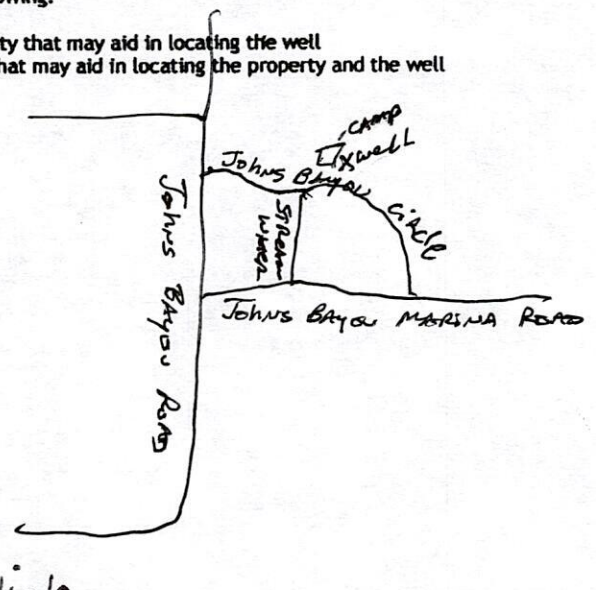 ty that may aid in locating the well
hat may aid in locating the property and the well
CAMP
X well
Johns Bayou Circle
Johns Bayou Road
Johns Bayou Marina Road